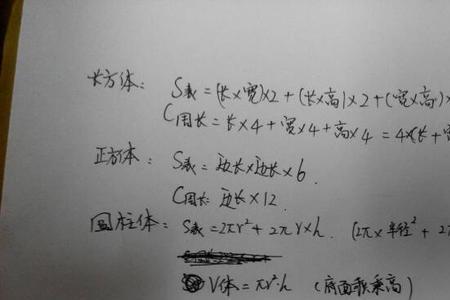 长方体: S表=(长×宽)×2+(长×高)×2+(宽×高)×
C周长=长×4+宽×4+高×4=4×(长+宽
正方体: S表=边长×边长×6.
C周长: 边长×12.
圆柱体: S表=2πr²+2πr×h. (2π×半径²+2
V体=πr²·h (底面积乘高)